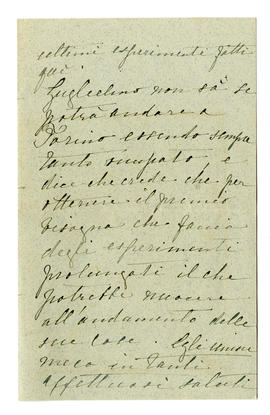 ultimi esperimenti fatti
qui.
Guglielmo non sà se
potrà andare a
Torino essendo sempre
tanto occupato e
dice che crede che per
ottenere il premio
bisogna che faccia
degli esperimenti
prolungati il che
potrebbe nuocere
all'andamento delle
sue cose. Egli unisce
meco in tanti
affettuosi saluti